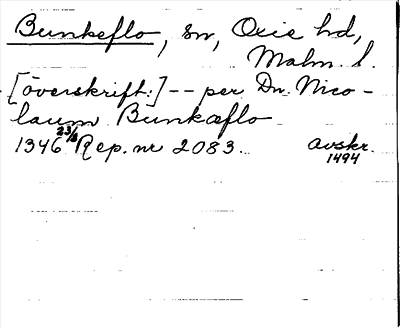 Bunkeflo, sn, Oxie hd,
Malm. l.
[överskrift:] -- per Dn. Nico-
laum Bunkæflo
1346 23/8 Rep. nr 2083. Avskr.
1494